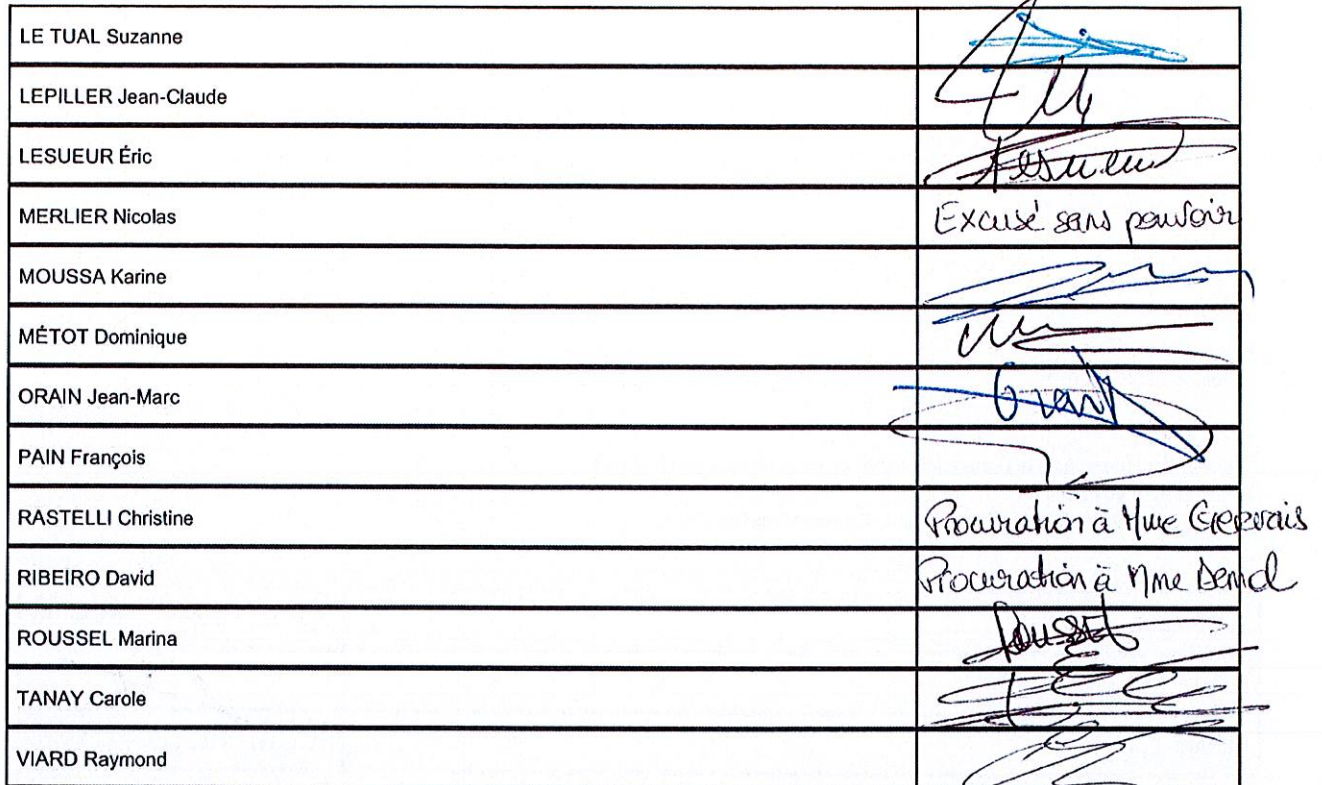 LE TUAL Suzanne
LEPILLER Jean-Claude
LESUEUR Éric Lesueur
MERLIER Nicolas Excusé sans pouvoir
MOUSSA Karine
MÉTOT Dominique
ORAIN Jean-Marc Orain
PAIN François
RASTELLI Christine Procuration à Mme Gervais
RIBEIRO David Procuration à Mme
ROUSSEL Marina
TANAY Carole
VIARD Raymond